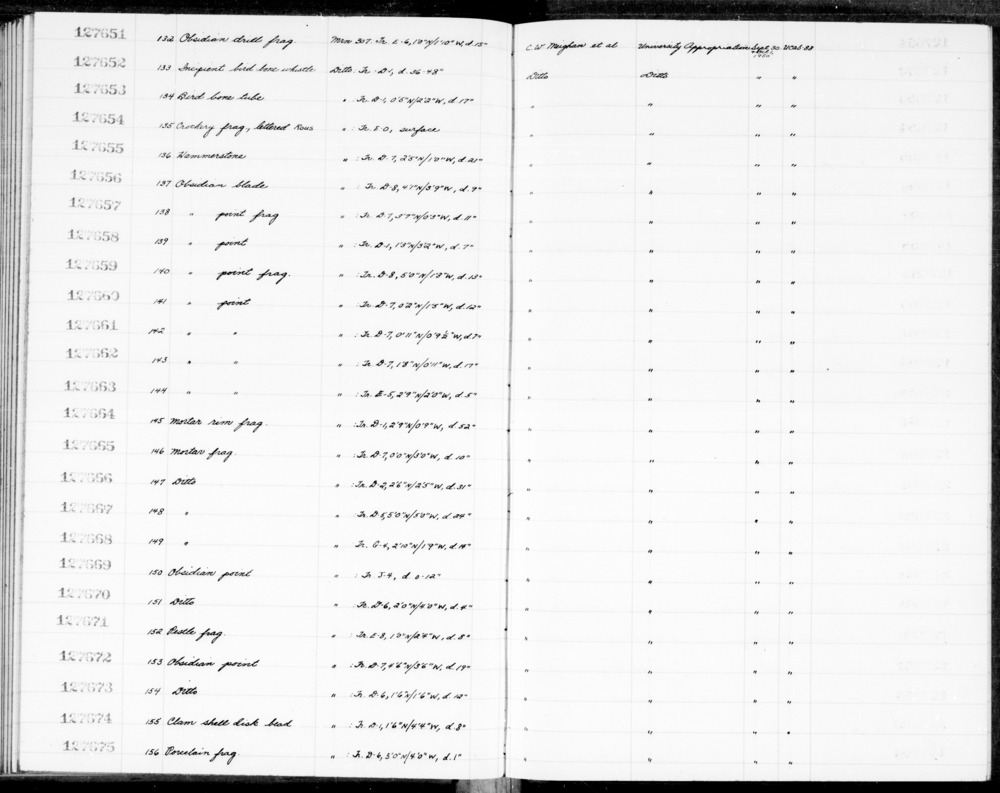 127651 132 Obsidian drill frag. Mrn 307: Tr. E-6, 1'0"N/1'10"W, d. 15" C.W. Meighan et al University Appropriation Sept. 30 1950 UCAS-88
127652 133 Incipient bird bone whistle Ditto: Tr. D-1, d. 36-48" Ditto Ditto " "
127653 134 Bird bone tube " : Tr. D-1, 0'5"N/2'2"W, d. 17" " " " "
127654 135 Crockery frag., lettered " : Tr. E-0, surface " " " "
127655 136 Hammerstone " : Tr. D-7, 2'8"N/1'0"W, d. 21" " " " "
127656 137 Obsidian blade " : Tr. D-8, 4'7"N/3'9"W, d. 9" " " " "
127657 138 " point frag " : Tr. D-7, 3'7"N/0'3"W, d. 11" " " " "
127658 139 " point " : Tr. D-1, 1'3"N/3'2"W, d. 7" " " " "
127659 140 " point frag. " : Tr. D-8, 5'0"N/1'8"W, d. 13" " " " "
127660 141 " point " : Tr. D-7, 0'2"N/1'5"W, d. 12" " " " "
127661 142 " " " : Tr. D-7, 0'11"N/0'9½"W, d. 7" " " " "
127662 143 " " " : Tr. D-7, 1'8"N/0'11"W, d. 17" " " " "
127663 144 " " " : Tr. E-5, 2'9"N/2'0"W, d. 5" " " " "
127664 145 Mortar rim frag. " : Tr. D-1, 2'9"N/0'9"W, d. 52" " " " "
127665 146 Mortar frag. " : Tr. D-7, 0'0"N/3'0"W, d. 10" " " " "
127666 147 Ditto " : Tr. D-2, 2'6"N/2'5"W, d. 31" " " " "
127667 148 " " : Tr. D-5, 5'0"N/5'0"W, d. 24" " " " "
127668 149 " " Tr. G-4, 2'10"N/1'9"W, d. 14" " " " "
127669 150 Obsidian point " : Tr. J-4, d. 0-12" " " " "
127670 151 Ditto " : Tr. D-6, 2'0"N/4'0"W, d. 4" " " " "
127671 152 Pestle frag. " : Tr. E-8, 1'0"N/2'4"W, d. 8" " " " "
127672 153 Obsidian point " : Tr. D-7, 4'6"N/3'6"W, d. 19" " " " "
127673 154 Ditto " : Tr. D-6, 1'6"N/1'6"W, d. 10" " " " "
127674 155 Clam shell disk bead " : Tr. D-1, 1'6"N/4'4"W, d. 8" " " " "
127675 156 Porcelain frag. " : Tr. D-6, 5'0"N/4'0"W, d. 1" " " " "